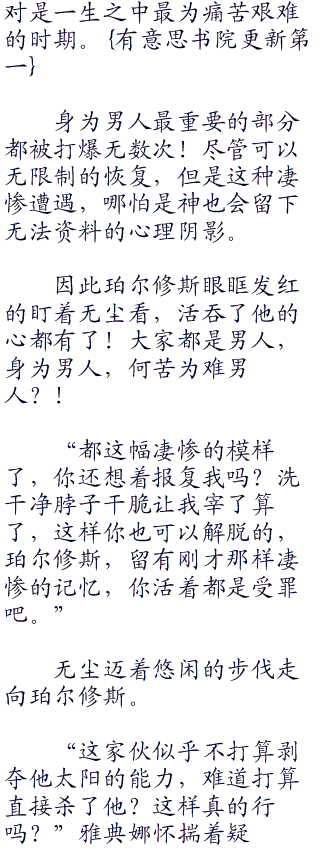 对是一生之中最为痛苦艰难
的时期。{有意思书院更新第
一}
身为男人最重要的部分
都被打爆无数次！尽管可以
无限制的恢复，但是这种凄
惨遭遇，哪怕是神也会留下
无法资料的心理阴影。
因此珀尔修斯眼眶发红
的盯着无尘看，活吞了他的
心都有了！大家都是男人，
身为男人，何苦为难男
人？！
“都这幅凄惨的模样
了，你还想着报复我吗？洗
干净脖子干脆让我宰了算
了，这样你也可以解脱的，
珀尔修斯，留有刚才那样凄
惨的记忆，你活着都是受罪
吧。”
无尘迈着悠闲的步伐走
向珀尔修斯。
“这家伙似乎不打算剥
夺他太阳的能力，难道打算
直接杀了他？这样真的行
吗？”雅典娜怀揣着疑